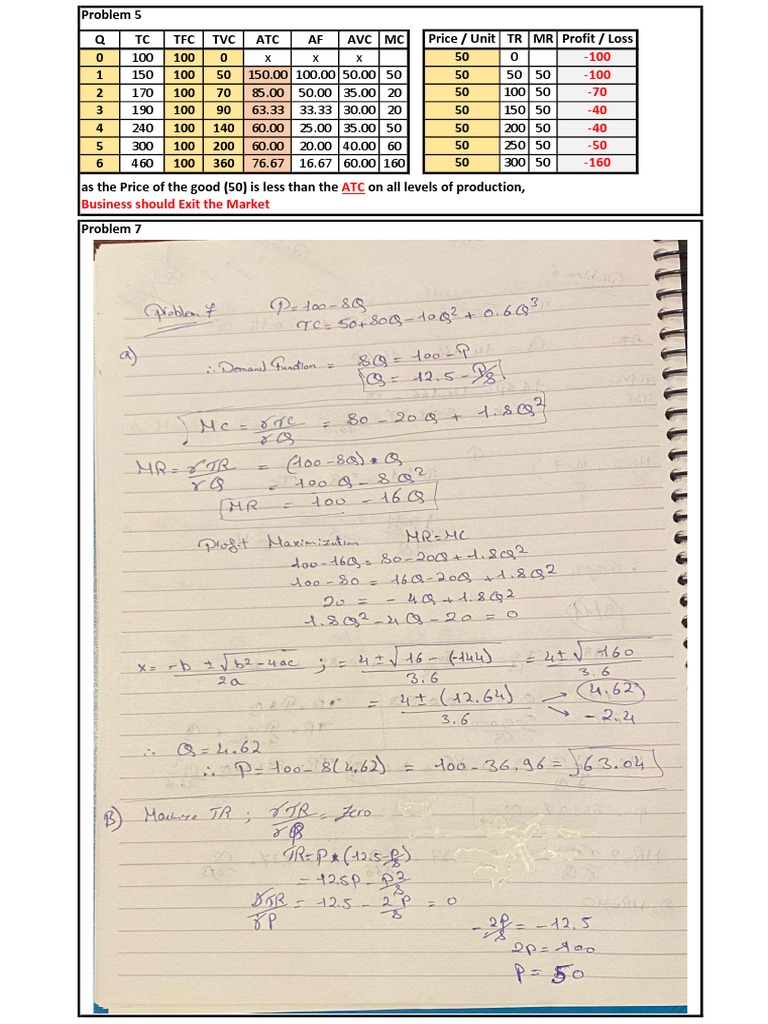 Problem 5
Q TC TFC TVC ATC AF AVC MC Price / Unit TR MR Profit / Loss
0 100 100 0 x x x 50 0 -100
1 150 100 50 150.00 100.00 50.00 50 50 50 50 -100
2 170 100 70 85.00 50.00 35.00 20 50 100 50 -70
3 190 100 90 63.33 33.33 30.00 20 50 150 50 -40
4 240 100 140 60.00 25.00 35.00 50 50 200 50 -40
5 300 100 200 60.00 20.00 40.00 60 50 250 50 -50
6 460 100 360 76.67 16.67 60.00 160 50 300 50 -160
as the Price of the good (50) is less than the ATC on all levels of production,
Business should Exit the Market
Problem 7
Problem 7 P=100-8Q
TC=50+80Q-10Q² + 0.6Q³
a)
∴ Demand Function = 8Q = 100-P
Q = 12.5 - P/8
MC = γTC/γQ = 80 - 20Q + 1.8Q²
MR = γTR/γQ = (100-8Q)*Q
= 100Q - 8Q²
MR = 100 - 16Q
Profit Maximization MR=MC
100-16Q=80-20Q+1.8Q²
100-80 = 16Q-20Q+1.8Q²
20 = -4Q+1.8Q²
1.8Q²-4Q-20=0
x = -b ± √b²-4ac / 2a ; = 4±√16-(-144) / 3.6 = 4±√160 / 3.6
= 4±(12.64) / 3.6 → 4.62
→ -2.4
∴ Q=4.62
∴ P=100-8(4.62) = 100-36.96 = 63.04
B) Maximize TR ; γTR/γP = Zero
TR=P*(12.5-P/8)
= 12.5P - P²/8
γTR/γP = 12.5 - 2P/8 = 0
-2P/8 = -12.5
2P=100
P=50